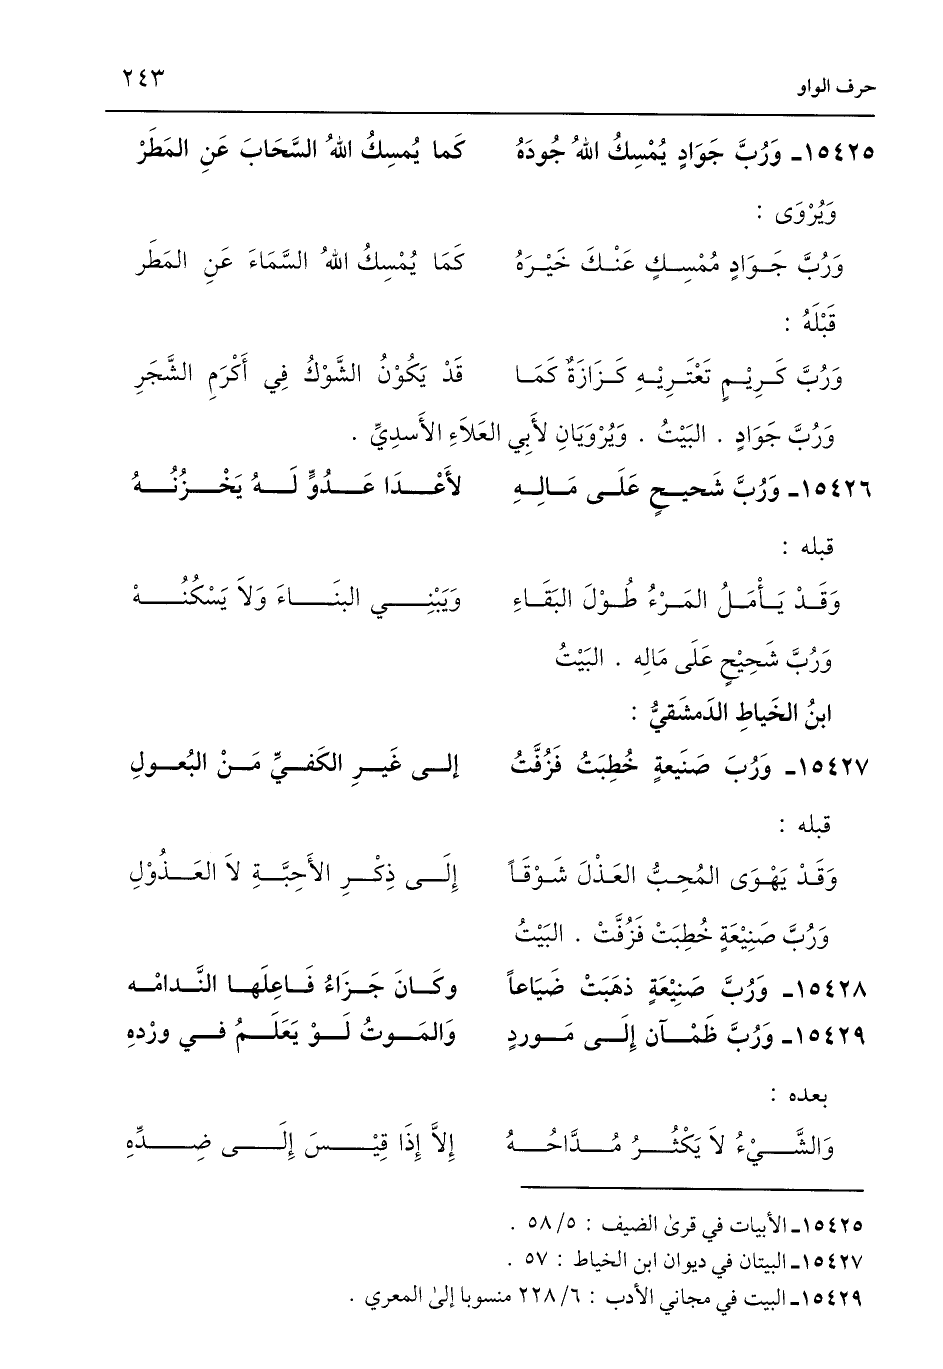 حرف الواو ٢٤٣
١٥٤٢٥ـ وَرُبَّ جَوَادٍ يُمْسِكُ اللهُ جُودَهُ كَما يُمسِكُ اللهُ السَّحَابَ عَنِ المَطَرْ
وَيُرْوَى :
وَرُبَّ جَـوَادٍ مُمْسِـكٍ عَنْـكَ خَيْـرَهُ كَمَـا يُمْسِـكُ اللهُ السَّمَاءَ عَنِ المَطَر
قَبْلَهُ :
وَرُبَّ كَـرِيْـمٍ تَعْتَـرِيْـهِ كَـزَازَةٌ كَمَـا قَدْ يَكُوْنُ الشَّوْكُ فِي أَكْرَمِ الشَّجَرِ
وَرُبَّ جَوَادٍ . البَيْتُ . وَيُرْوَيَانِ لأَبِي العَلاَءِ الأَسدِيِّ .
١٥٤٢٦ـ وَرُبَّ شَحيـحٍ عَلَـى مَـالِـهِ لأَعْـدَا عَـدُوٍّ لَـهُ يَخْـزُنُـهُ
قبله :
وَقَـدْ يَـأْمَـلُ المَـرْءُ طُـوْلَ البَقَـاءِ وَيَبْنِـي البِنَـاءَ وَلاَ يَسْكُنُـهْ
وَرُبَّ شَحِيْحٍ عَلَى مَالِه . البَيْتُ
ابنُ الخَياطِ الدَمشَقيُّ :
١٥٤٢٧ـ وَرُبَ صَنَيعةٍ خُطِبَتُ فَزُفَّتُ إلـى غَيـرِ الكَفـيِّ مَـنْ البُعـولِ
قبله :
وَقَـدْ يَهْـوَى المُحِـبُّ العَذْلَ شَـوْقَـاً إِلَـى ذِكْـرِ الأَحِبَّـةِ لاَ العَـذُوْلِ
وَرُبَّ صَنِيْعَةٍ خُطِبَتْ فَزُفَّتْ . البَيْتُ
١٥٤٢٨ـ وَرُبَّ صَنِيْعَةٍ ذهَبَتْ ضَيَاعاً وكَـانَ جَـزَاءُ فَـاعِلَهـا النَّـدامْـه
١٥٤٢٩ـ وَرُبَّ ظَمْـآن إِلَـى مَـوردٍ وَالمَـوتُ لَـوْ يَعَلَـمُ فـي ورْدهِ
بعده :
وَالشَّـيْءُ لاَ يَكْثُـرُ مُـدَّاحُـهُ إِلاَّ إِذَا قِيْـسَ إِلَـى ضِـدِّهِ
١٥٤٢٥ـ الأبيات في قرىٰ الضيف : ٥/ ٥٨ .
١٥٤٢٧ـ البيتان في ديوان ابن الخياط : ٥٧ .
١٥٤٢٩ـ البيت في مجاني الأدب : ٦/ ٢٢٨ منسوبا إلىٰ المعري .